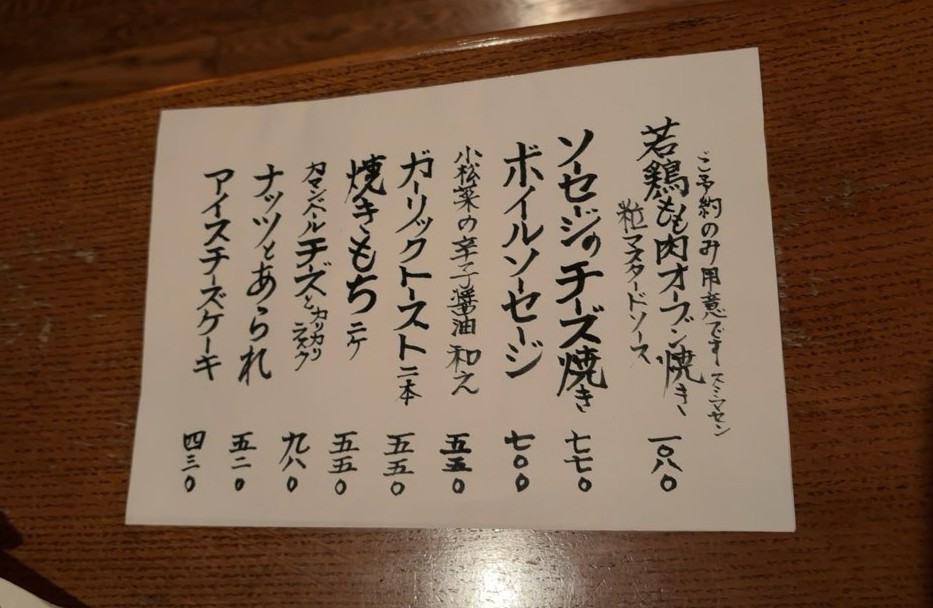 ご予約のみ用意です スミマセン
若鶏もも肉オーブン焼き 一〇八〇
粒マスタードソース
ソーセージのチーズ焼き 七七〇
ボイルソーセージ 七〇〇
小松菜の辛子醤油和え 五五〇
ガーリックトースト 二本 五五〇
焼きもち 二ケ 五五〇
カマンベールチーズとカリカリ 九八〇
ナッツとあられ 五二〇
アイスチーズケーキ 四三〇